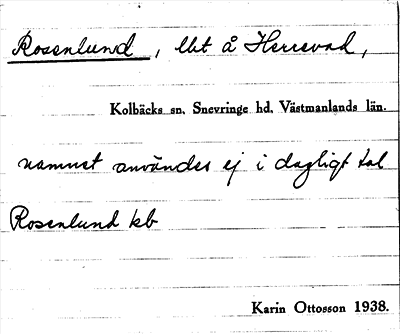 Rosenlund, lht å Herrevad,
Kolbäcks sn. Snevringe hd. Västmanlands län.
namnet användes ej i dagligt tal
Rosenlund kb
Karin Ottosson 1938.